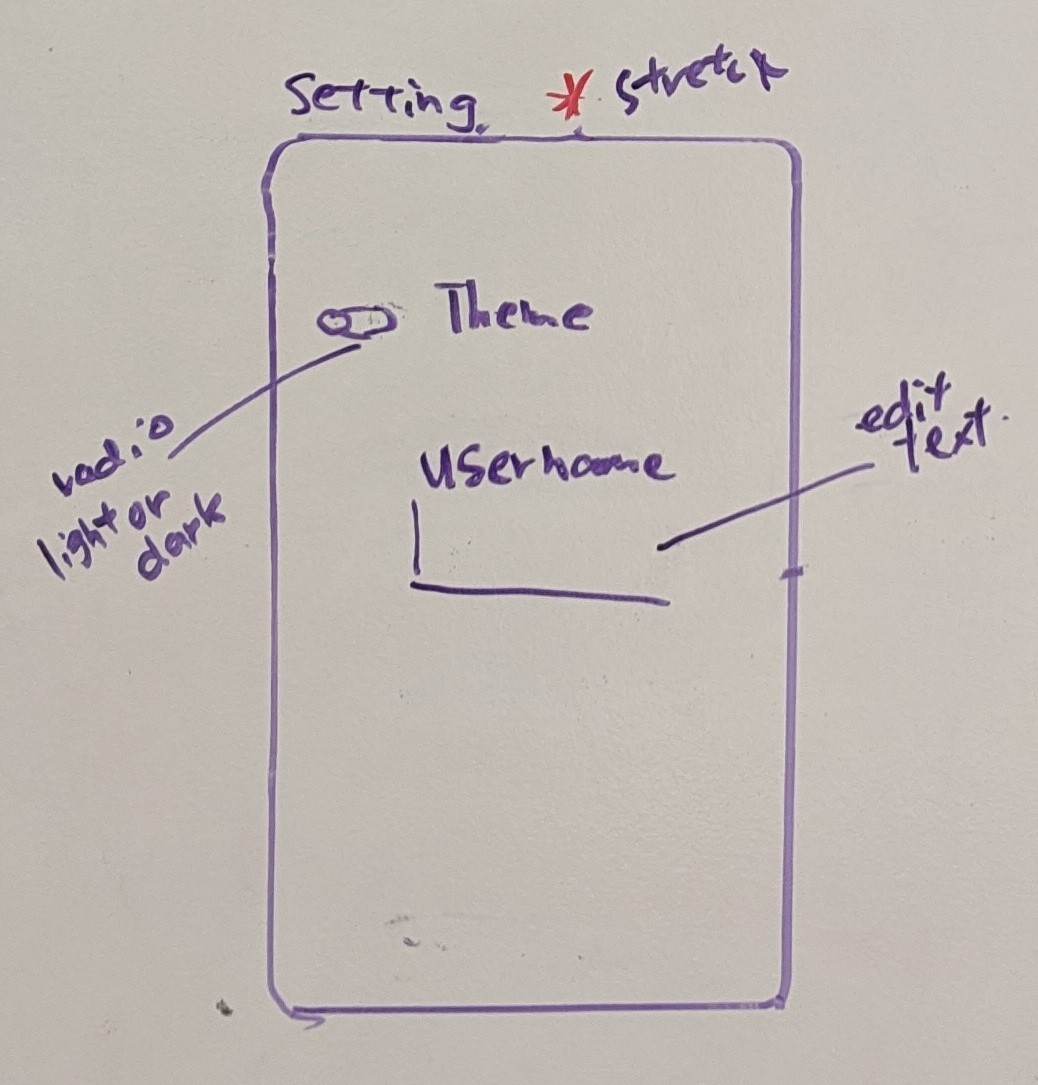 Setting * stretch
Theme
radio
light or
dark
Username
edit
text.